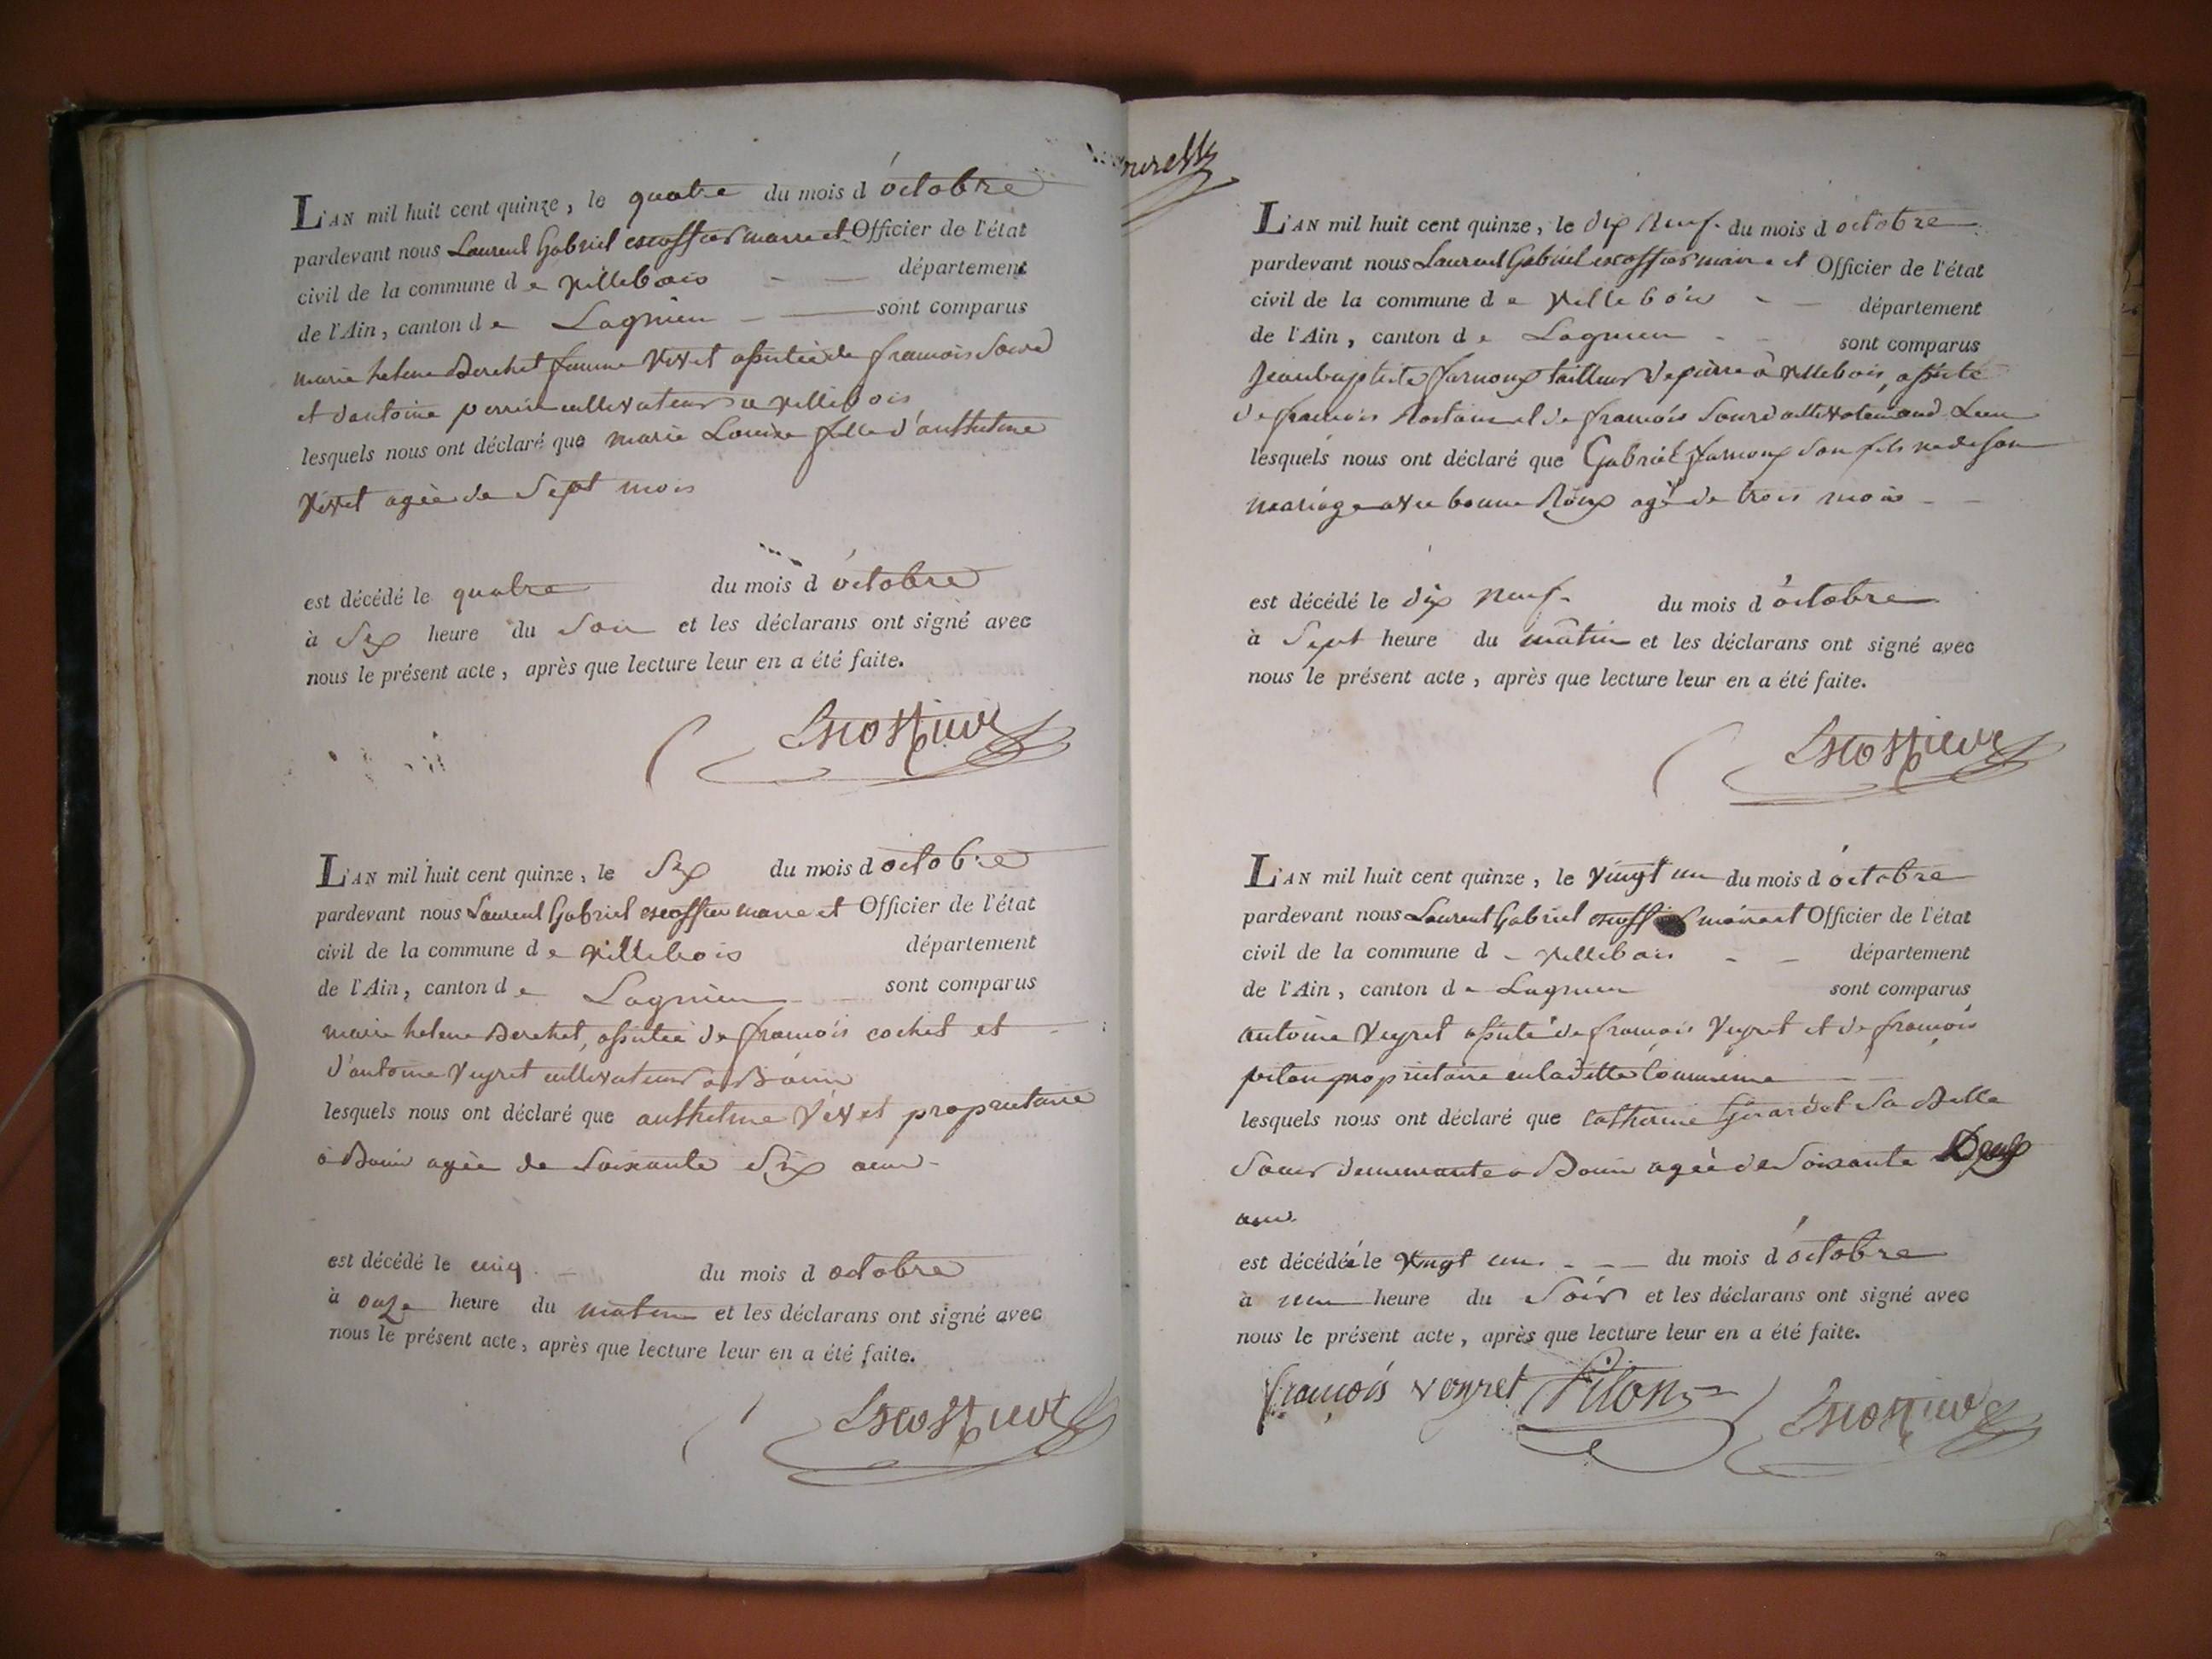 L'AN mil huit cent quinze, le quatre du mois d'octobre
pardevant nous Laurent Gabriel escoffier maire et Officier de l'état
civil de la commune de villebois département
de l'Ain, canton de Lagnieu sont comparus
marie helene Berchet femme Vivet assistée de francois
et d'antoine perrin cultivateurs a villebois
lesquels nous ont déclaré que marie Louise fille d'anthelme
Vivet agée de Sept mois
est décédé le quatre du mois d'octobre
à Six heure du Soir et les déclarans ont signé avec
nous le présent acte, après que lecture leur en a été faite.
Escoffier
L'AN mil huit cent quinze, le Six du mois d octobre
pardevant nous Laurent Gabriel escoffier maire et Officier de l'état
civil de la commune de villebois département
de l'Ain, canton de Lagnieu sont comparus
marie helene Berchet, assistée de francois cochet et
d'antoine Veyret cultivateurs a Bouis
lesquels nous ont déclaré que anthelme Vivet proprietaire
à Bouis agée de Soixante Six ans
est décédé le cinq du mois d octobre
à onze heure du matin et les déclarans ont signé avec
nous le présent acte, après que lecture leur en a été faite.
Escoffier
L'AN mil huit cent quinze, le dix neuf du mois d octobre
pardevant nous Laurent Gabriel escoffier maire et Officier de l'état
civil de la commune de villebois département
de l'Ain, canton de Lagnieu sont comparus
Jean baptiste tailleur de pierre à villebois, assisté
de francois et de francois
lesquels nous ont déclaré que Gabriel son fils né de son
mariage avec bonne Roux agé de trois mois
est décédé le dix neuf du mois d'octobre
à Sept heure du matin et les déclarans ont signé avec
nous le présent acte, après que lecture leur en a été faite.
Escoffier
L'AN mil huit cent quinze, le vingt un du mois d'octobre
pardevant nous Laurent Gabriel maire et Officier de l'état
civil de la commune de villebois département
de l'Ain, canton de Lagnieu sont comparus
antoine Veyret assisté de francois Veyret et de francois
pilon proprietaire en la ditte Commune
lesquels nous ont déclaré que Catherine Girardet Sa Belle
Soeur demeurante a Bouis agée de Soixante Deux
ans
est décédée le Vingt un du mois d'octobre
à une heure du Soir et les déclarans ont signé avec
nous le présent acte, après que lecture leur en a été faite.
francois veyret Pilon Escoffier